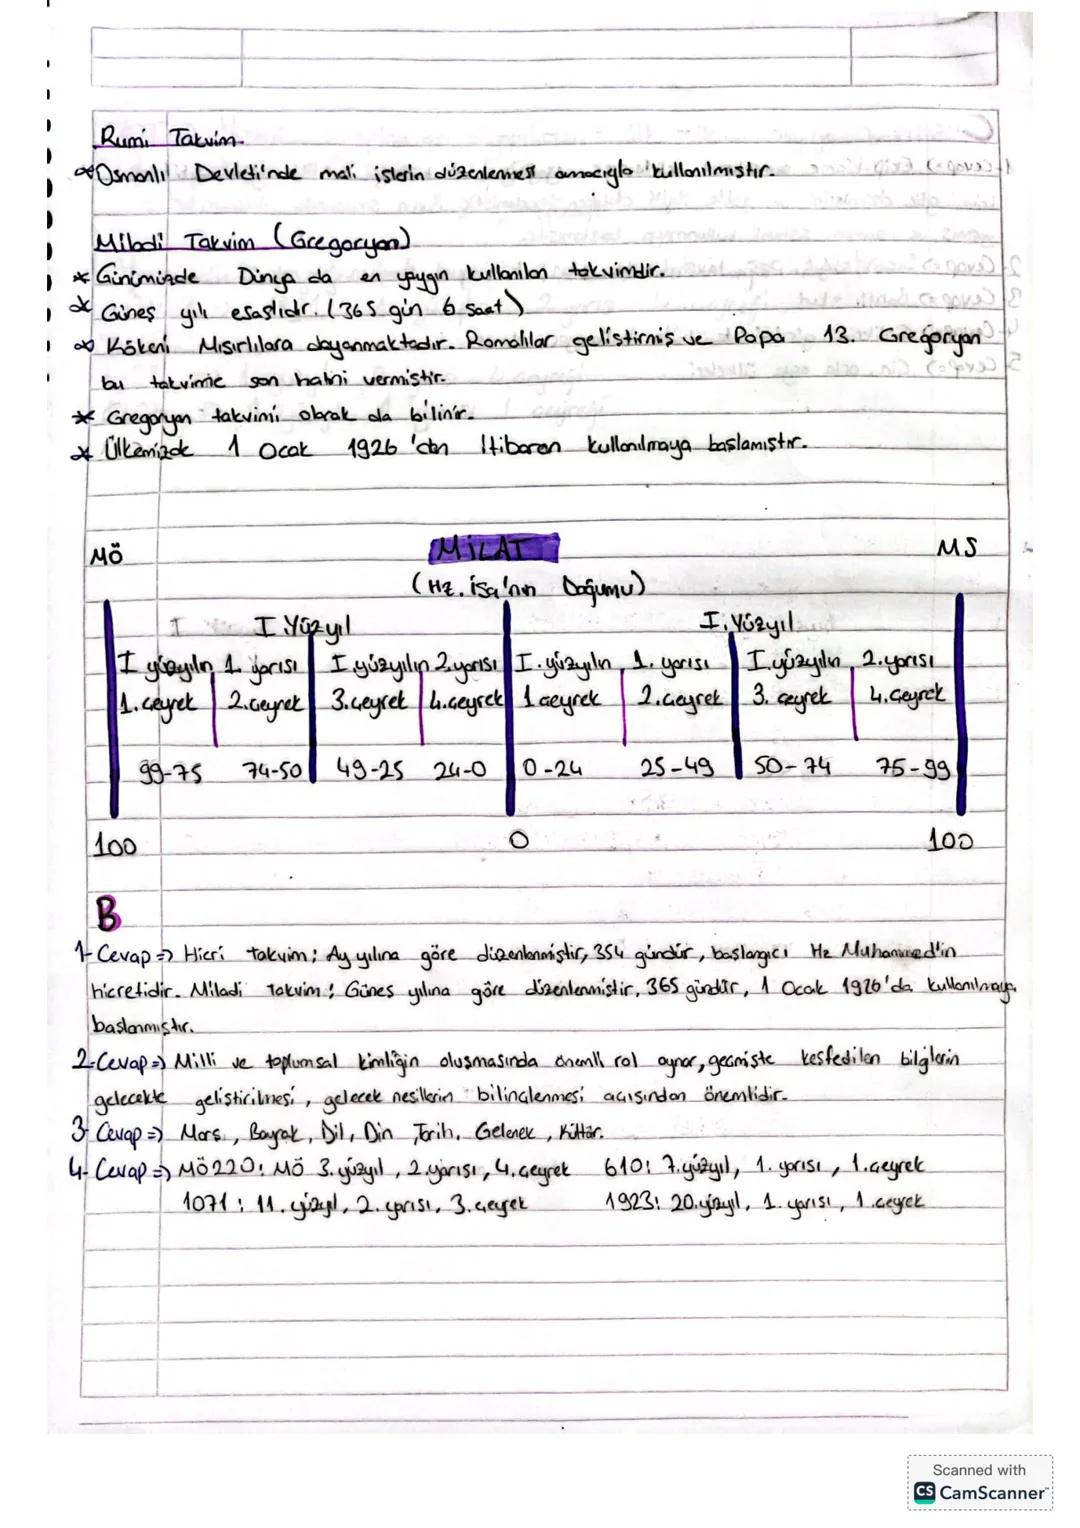 Rumi Takvim
* Osmanlı Devleti'nde mali işlerin düzenlenmesi amacıyla kullanılmıştır.
Miladi Takvim (Gregoryan)
* Günümüzde Dünya da en yaygın kullanılan takvimdir.
* Güneş yılı esaslıdır. (365 gün 6 saat)
* Kökeni Mısırlılara dayanmaktadır. Romalılar geliştirmiş ve Papa 13. Gregoryan
bu takvime son halini vermiştir.
* Gregoryan takvimi olarak da bilinir.
* Ülkemizde 1 Ocak 1926'dan itibaren kullanılmaya başlamıştır.
MÖ MİLAT MS
(Hz. İsa'nın Doğumu)
I. Yüzyıl I. Yüzyıl
I yüzyılın 1. yarısı I. yüzyılın 2. yarısı I. yüzyılın 1. yarısı I. yüzyılın 2. yarısı
1. çeyrek 2. çeyrek 3. çeyrek 4. çeyrek 1 çeyrek 2. çeyrek 3. çeyrek 4. çeyrek
99-75 74-50 49-25 24-0 0-24 25-49 50-74 75-99
100 0 100
B
1- Cevap => Hicri takvim; Ay yılına göre düzenlenmiştir, 354 gündür, başlangıcı Hz Muhammed'in
hicretidir. Miladi Takvim; Güneş yılına göre düzenlenmiştir, 365 gündür, 1 Ocak 1926'da kullanılmaya
başlanmıştır.
2- Cevap => Milli ve toplumsal kimliğin oluşmasında önemli rol oynar, geçmişte keşfedilen bilgilerin
gelecekte geliştirilmesi, gelecek nesillerin bilinçlenmesi açısından önemlidir.
3- Cevap => Marş, Bayrak, Dil, Din Tarih, Gelenek, Kültür.
4- Cevap => MÖ 220: MÖ 3. yüzyıl, 2. yarısı, 4. çeyrek 610: 7. yüzyıl, 1. yarısı, 1. çeyrek
1071: 11. yüzyıl, 2. yarısı, 3. çeyrek 1923: 20. yüzyıl, 1. yarısı, 1. çeyrek
Scanned with
CS CamScanner